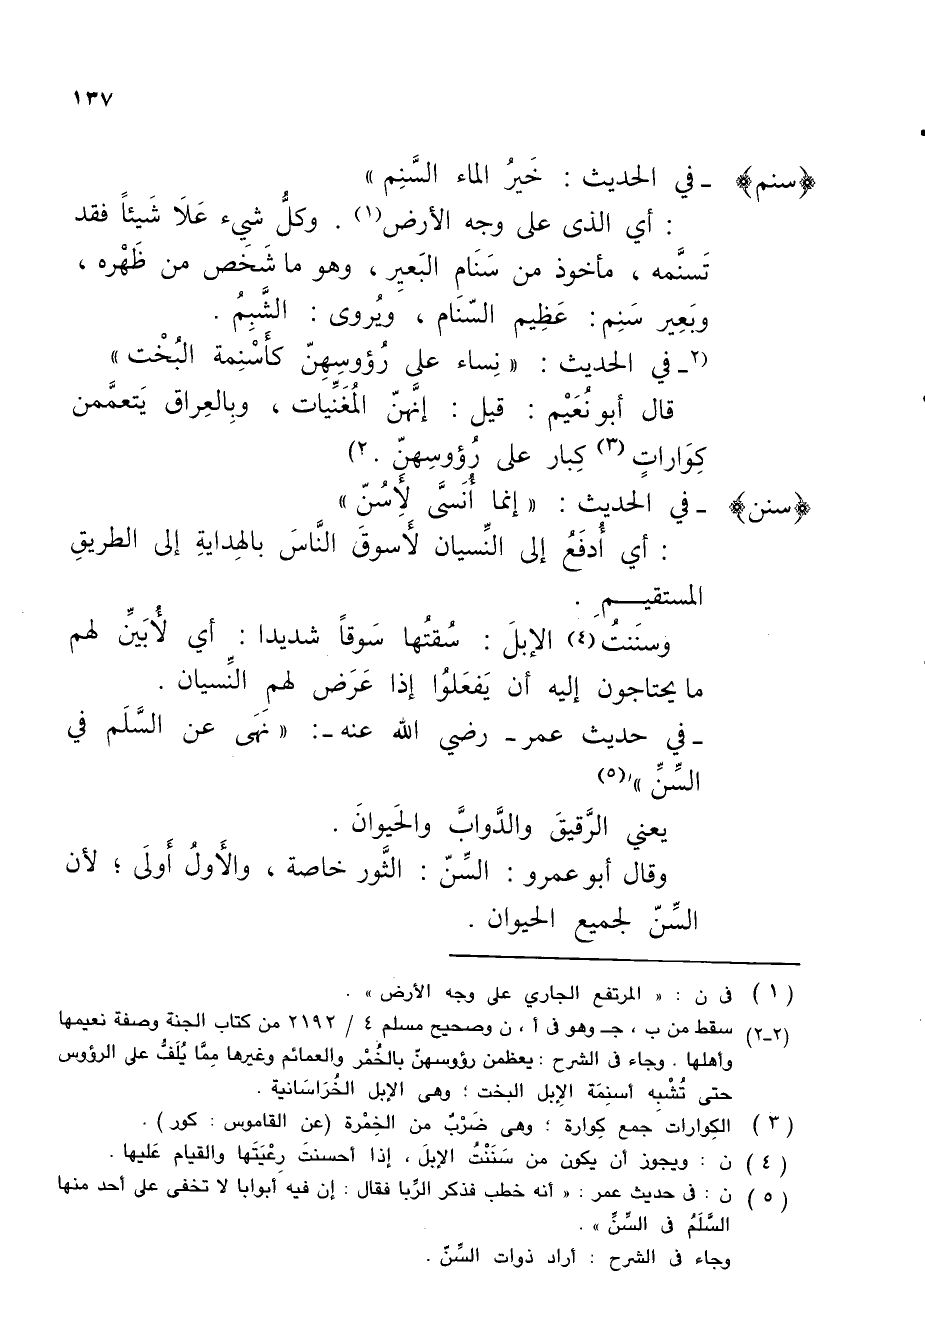 ١٣٧
﴿سنم﴾ ـ في الحديث : خَيرُ الماء السَّنِم »
: أي الذى على وجه الأرض(١) . وكلُّ شيء عَلَا شَيئاً فقد
تَسنَّمه ، مأخوذ من سَنَام البَعيرِ ، وهو ما شَخَص من ظَهْره ،
وبَعِير سَنِم : عَظِيم السّنَام ، ويُروى : الشَّبِمُ .
(٢ـ في الحديث : « نِساء على رُؤوسِهِنّ كأَسْنِمة البُخْت »
قال أبو نُعَيْم : قيل : إنَّهنّ المُغَنِّيات ، وبِالعِراق يَتعمَّمن
كِوَاراتٍ (٣) كِبار على رُؤوسِهنّ . ٢)
﴿سنن﴾ ـ في الحديث : « إنما أُنَسَّى لِأَسُنّ »
: أي أُدفَعُ إلى النِّسيان لأَسوقَ النَّاسَ بالهِدايةِ إلى الطريقِ
المستقيـــمِ .
وسنَنتُ (٤) الإبلَ : سُقتُها سَوقاً شديدا : أي لأُبَيِّن لهم
ما يحتاجون إليه أن يَفعَلوُا إذا عَرَض لهم النِّسيان .
ـ في حديث عمر ـ رضي الله عنه ـ: « نَهَى عن السَّلَم في
السِّنِّ »(٥)
يعني الرَّقيقَ والدَّوابَّ والحَيوانَ .
وقال أبو عمرو : السِّنّ : الثَّور خاصة ، والأَولُ أَولَى ؛ لأن
السِّنّ لجميع الحيوان .
(١) فى ن : « المرتفع الجاري على وجه الأرض » .
(٢ـ٢) سقط من ب ، جـ وهو فى أ ، ن وصحيح مسلم ٤ / ٢١٩٢ من كتاب الجنة وصفة نعيمها
وأهلها . وجاء فى الشرح : يعظمن رؤوسهنّ بالخُمْر والعمائم وغيرها مِمَّا يُلَفُّ على الرؤوس
حتى تُشْبِه أسنِمَة الإبل البخت ؛ وهى الإبل الخُرَاسَانية .
(٣) الكِوارات جمع كِوارة ؛ وهى ضَرْبٌ من الخِمْرة (عن القاموس : كور) .
(٤) ن : ويجوز أن يكون من سَنَنْتُ الإبلَ ، إذا أحسنتَ رِعْيَتَها والقيام عَليها .
(٥) ن : فى حديث عمر : « أنه خطب فذكر الرِّبا فقال : إن فيه أبوابا لا تخفى على أحد منها
السَّلَمُ فى السِّنِّ » .
وجاء فى الشرح : أراد ذوات السِّنّ .